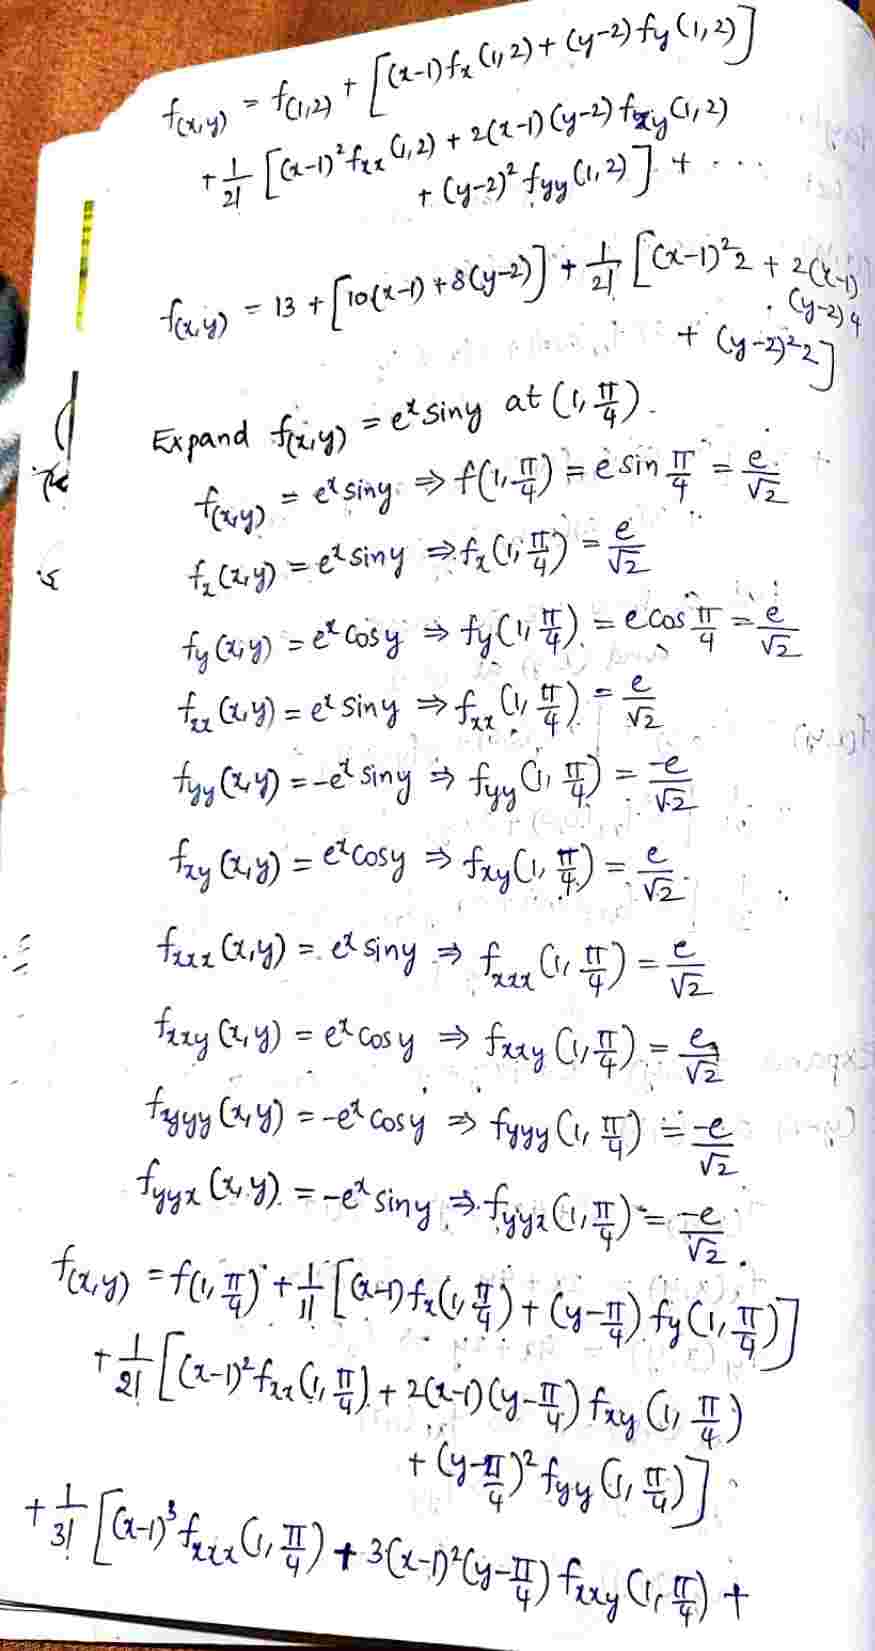 f(x,y) = f(1,2) + [(x-1)fx(1,2) + (y-2)fy(1,2)]
+ 1/2! [(x-1)²fxx(1,2) + 2(x-1)(y-2)fxy(1,2)
+ (y-2)²fyy(1,2)] + ...
f(x,y) = 13 + [10(x-1) + 8(y-2)] + 1/2! [(x-1)²2 + 2(x-1)
(y-2)4
+ (y-2)²2]
Expand f(x,y) = eˣ siny at (1, π/4).
f(x,y) = eˣ siny ⇒ f(1, π/4) = e sin π/4 = e/√2
fx(x,y) = eˣ siny ⇒ fx(1, π/4) = e/√2
fy(x,y) = eˣ cosy ⇒ fy(1, π/4) = e cos π/4 = e/√2
fxx(x,y) = eˣ siny ⇒ fxx(1, π/4) = e/√2
fyy(x,y) = -eˣ siny ⇒ fyy(1, π/4) = -e/√2
fxy(x,y) = eˣ cosy ⇒ fxy(1, π/4) = e/√2
fxxx(x,y) = eˣ siny ⇒ fxxx(1, π/4) = e/√2
fxxy(x,y) = eˣ cosy ⇒ fxxy(1, π/4) = e/√2
fyyy(x,y) = -eˣ cosy ⇒ fyyy(1, π/4) = -e/√2
fyyx(x,y) = -eˣ siny ⇒ fyyx(1, π/4) = -e/√2.
f(x,y) = f(1, π/4) + 1/1! [(x-1)fx(1, π/4) + (y-π/4)fy(1, π/4)]
+ 1/2! [(x-1)²fxx(1, π/4) + 2(x-1)(y-π/4)fxy(1, π/4)
+ (y-π/4)²fyy(1, π/4)]
+ 1/3! [(x-1)³fxxx(1, π/4) + 3(x-1)²(y-π/4)fxxy(1, π/4) +